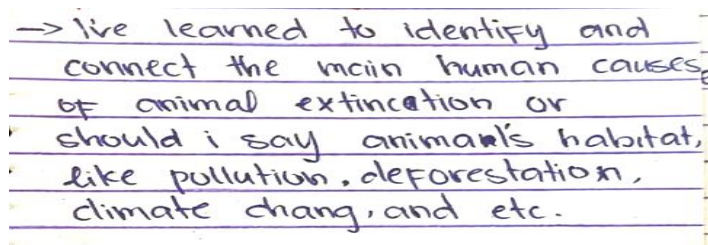 → I've learned to identify and
connect the main human causes
of animal extinction or
should i say animal's habitat,
like pollution, deforestation,
climate chang, and etc.